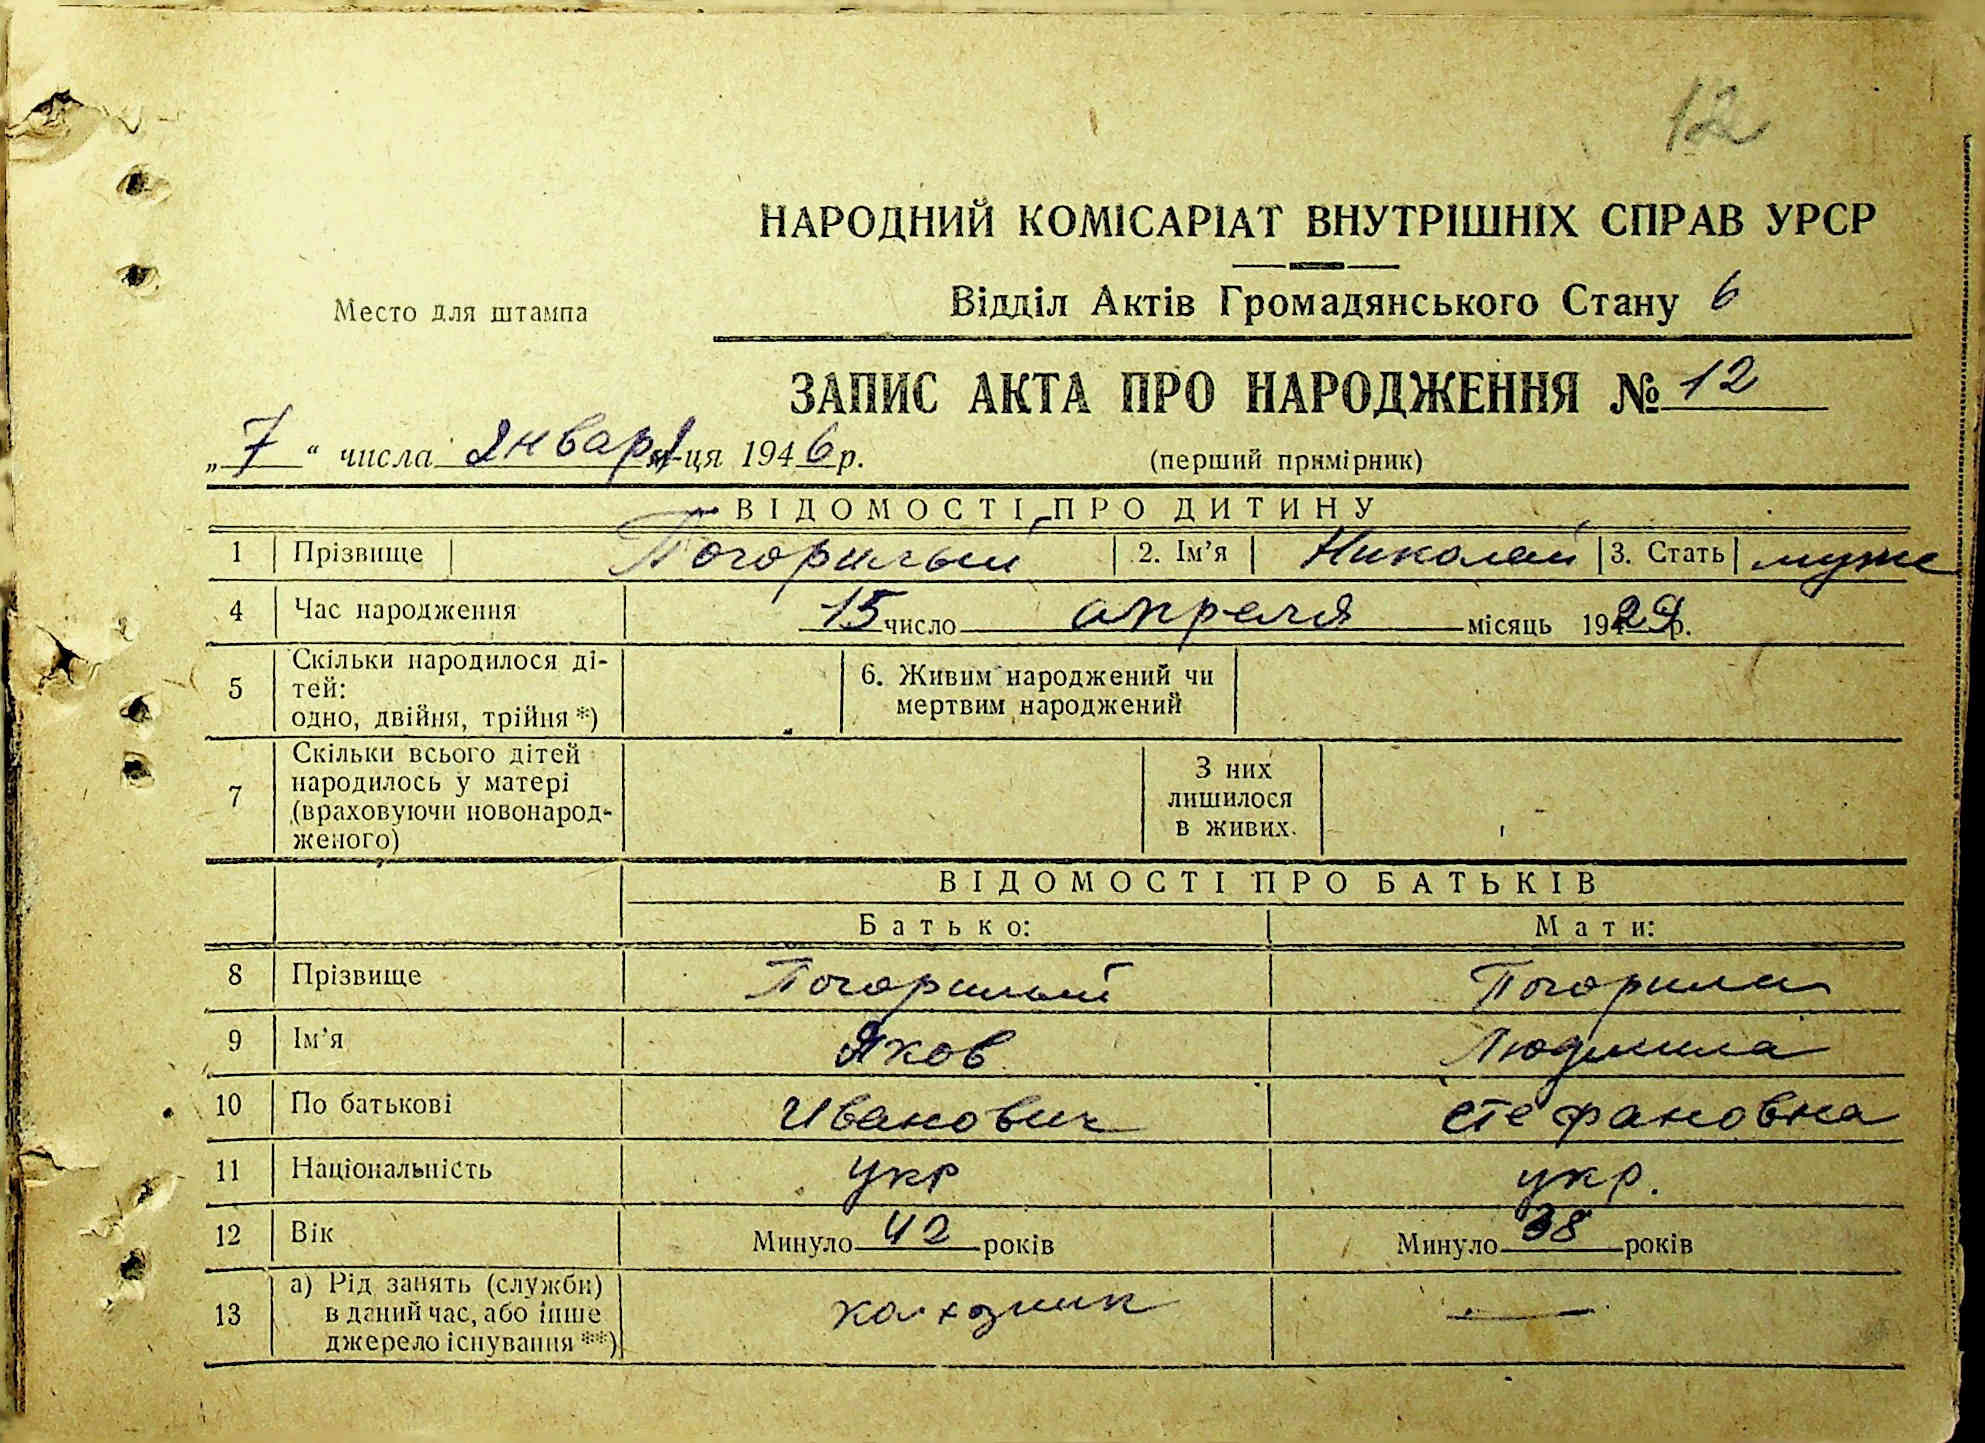 12
НАРОДНИЙ КОМІСАРІАТ ВНУТРІШНІХ СПРАВ УРСР
Место для штампа
Відділ Актів Громадянського Стану 6
ЗАПИС АКТА ПРО НАРОДЖЕННЯ № 12
„7“ числа января м-ця 1946 р.
(перший примірник)
ВІДОМОСТІ ПРО ДИТИНУ
1 Прізвище Погорилый 2. Ім’я Николай 3. Стать муже
4 Час народження 15 число апреля місяць 1929 р.
5 Скільки народилося ді-
тей:
одно, двійня, трійня *)
6. Живим народжений чи
мертвим народжений
7 Скільки всього дітей
народилось у матері
(враховуючи новонарод-
женого)
З них
лишилося
в живих.
ВІДОМОСТІ ПРО БАТЬКІВ
Батько: Мати:
8 Прізвище Погорилый Погорила
9 Ім’я Яков Людмила
10 По батькові Иванович Стефановна
11 Національність укр укр.
12 Вік Минуло 42 років Минуло 38 років
13 а) Рід занять (служби)
в даний час, або інше
джерело існування **)
колхозник —